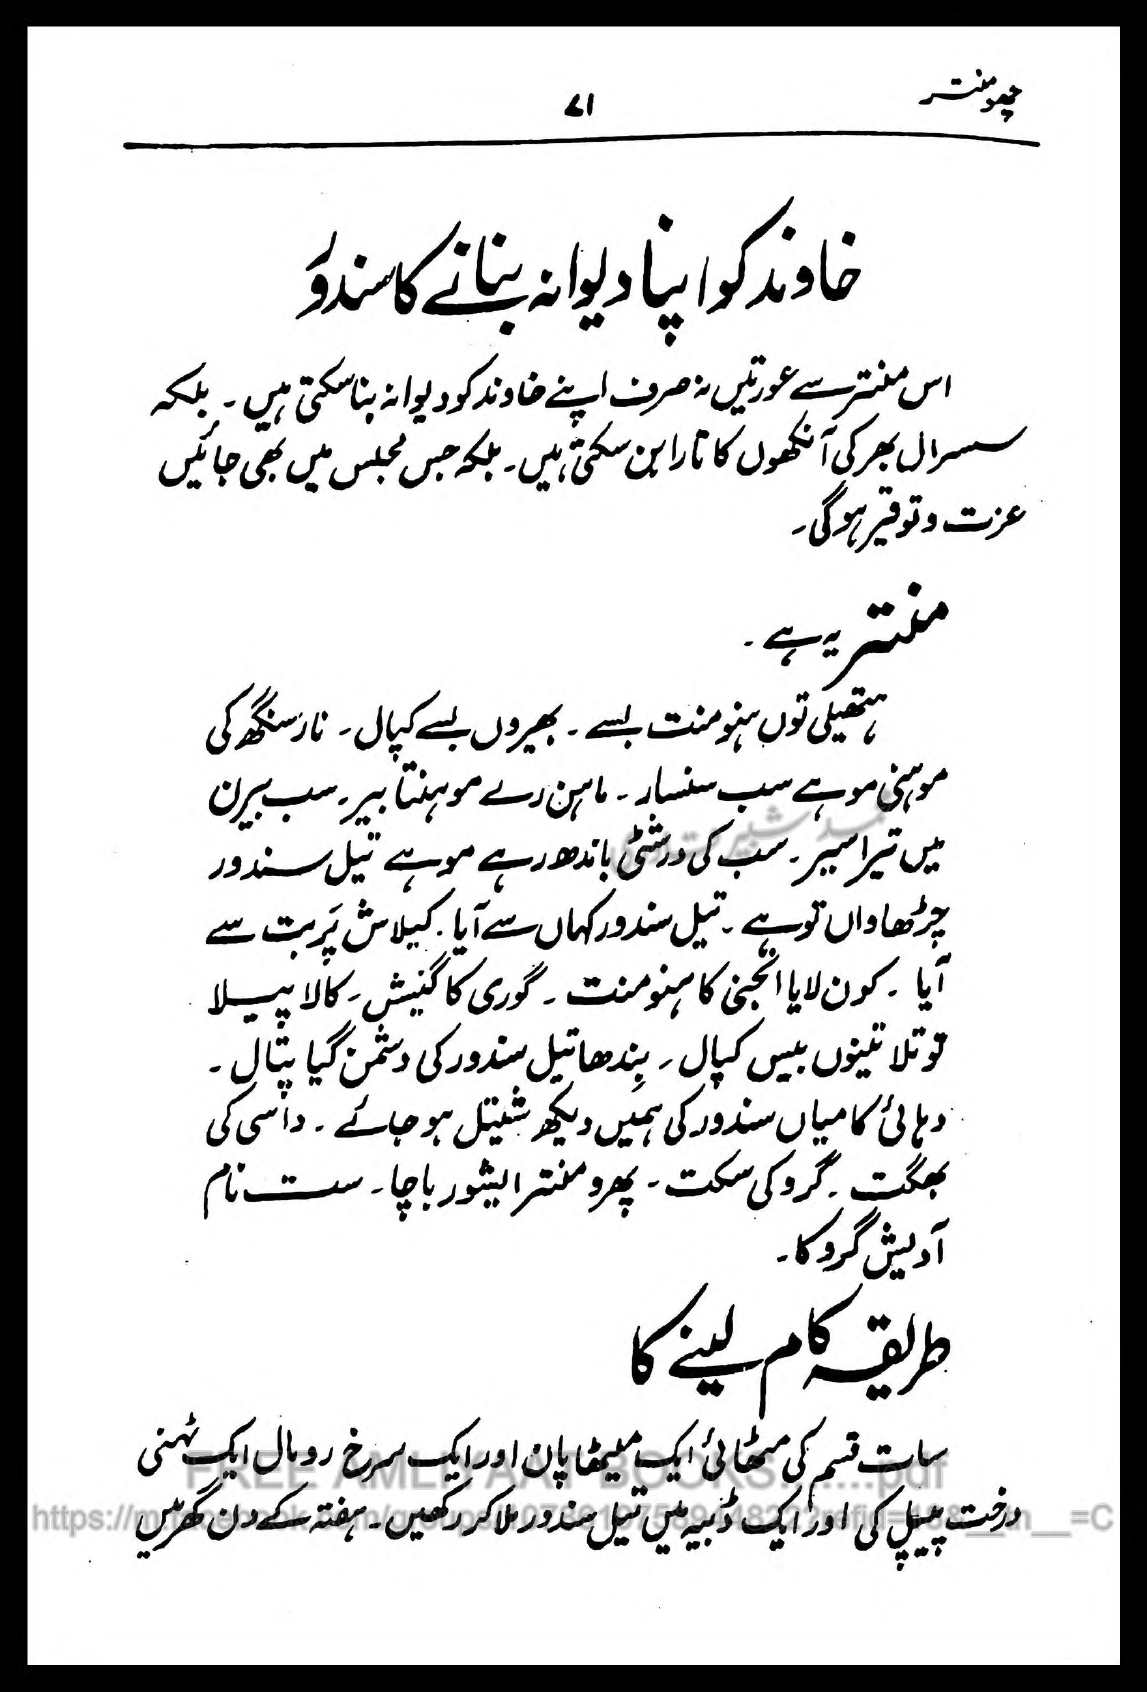 چھو منتر
۷۱
خاوند کو اپنا دیوانہ بنانے کا سندوَر
اس منتر سے عورتیں نہ صرف اپنے خاوند کو دیوانہ بنا سکتی ہیں ۔ بلکہ
سسرال بھر کی آنکھوں کا تارا بن سکتی ہیں ۔ بلکہ جس مجلس میں بھی جائیں
عزت و توقیر ہوگی ۔
منتر یہ ہے ۔
ہتھیلی توں ہنومنت بسے ۔ بھیروں بسے کپال ۔ نارسنگھ کی
موہنی موہے سب سنسار ۔ ماہن رے موہنتا بیر ۔ سب بیرن
میں تیرا سیر ۔ سب کی درشٹی باندھ رہے موہے تیل سندور
چڑھاواں توہے ۔ تیل سندور کہاں سے آیا ۔ کیلاش پَربت سے
آیا ۔ کون لایا انجنی کا ہنومنت ۔ گوری کا گنیش ۔ کالا پیلا
توتلا تینوں بیس کپال ۔ بِندھا تیل سندور کی دشمن گیا پتال ۔
دہائی کا میاں سندور کی ہمیں دیکھ شیتل ہو جائے ۔ داسی کی
بھگت ۔ گرو کی سکت ۔ پھرو منتر ایشور باچا ۔ ست نام
آدیش گرو کا ۔
طریقہ کام لینے کا
سات قسم کی مٹھائی ایک میٹھا پان اور ایک سرخ رومال ایک ٹہنی
درخت پیپل کی اور ایک ڈبیہ میں تیل سندور ملا کر رکھیں ۔ ہفتہ کے دن گھر میں
FREE AMLIYAAT BOOKS......pdf